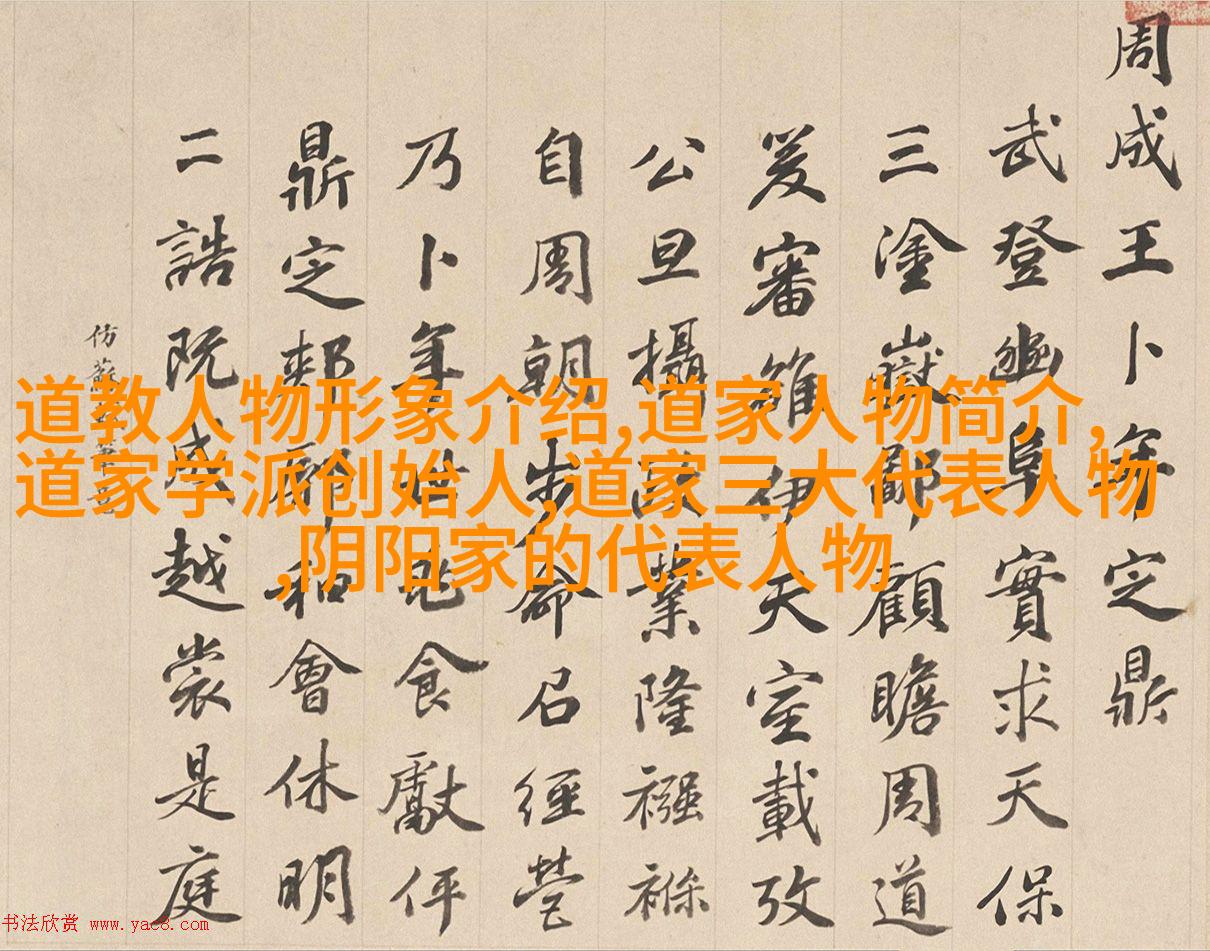 周成王卜年定鼎
武登豳阜實求天保
三塗嶽鄙顧瞻周道
爰審雒伊天室載攷
公旦攝政業隆襁褓
自周朝步命召經營
乃卜年兆食獻伻
鼎定郟鄏和會休明
二誥既成越裳是庭
仿蘇
道教人物形象介绍,道家人物简介,
道家学派创始人,道家三大代表人物
,阴阳家的代表人物
书法欣赏 www.yac8.com